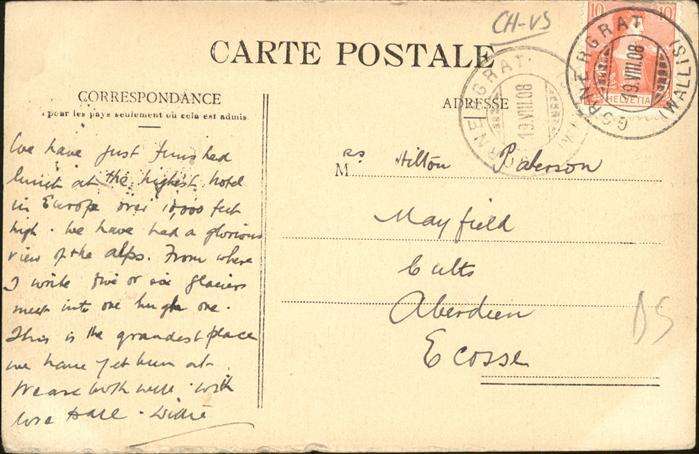 CH-VS
CARTE POSTALE
CORRESPONDANCE
(pour les pays seulement où cela est admis
ADRESSE
10 10
HELVETIA
GORNERGRAT (WALLIS)
19.VIII.08
GORNERGRAT
19.VIII.08
We have just finished
lunch at the highest hotel
in Europe over 10,000 feet
high. We have had a glorious
view of the alps. From where
I write five or six glaciers
meet into one huge one.
This is the grandest place
we have yet been at.
We are both well. With
love to all. Willie
Mrs Hilton Paterson
Mayfield
Cults
Aberdeen
Ecosse
DS